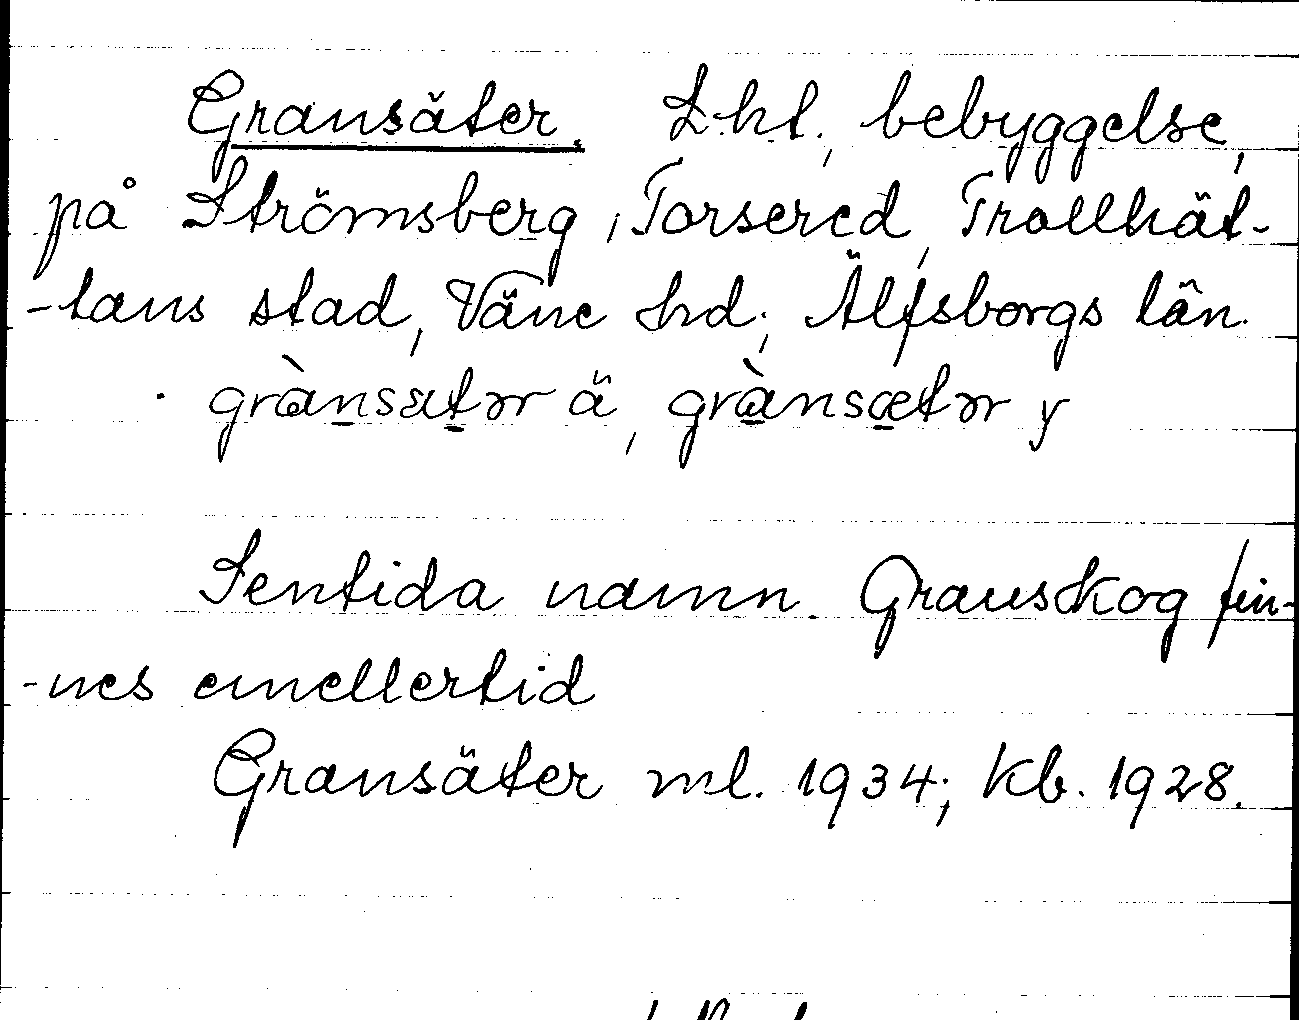 Gransäter. Lht, bebyggelse,
på Strömsberg, Torsered, Trollhät-
-tans stad, Väne hd, Älfsborgs län.
grànsætər ä, grànsætər y
Sentida namn. Granskog fin-
-nes emellertid
Gransäter ml. 1934; Kb. 1928.